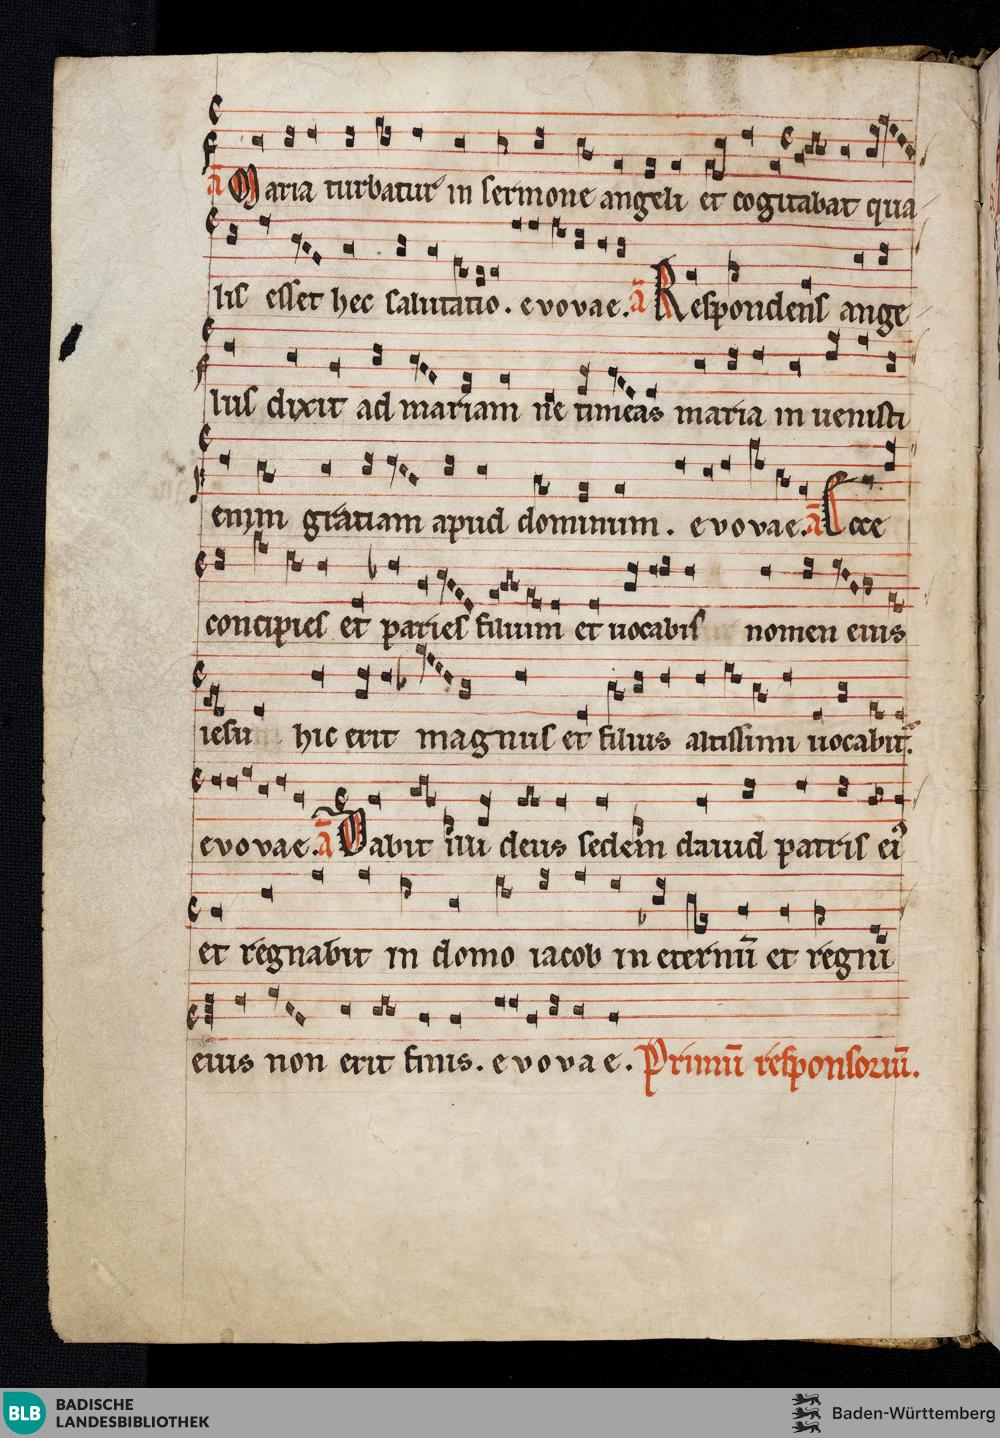 ā Maria turbatur in sermone angeli et cogitabat qua
lis esset hec salutatio. evovae. ā Respondens ange
lus dixit ad mariam ne timeas maria in uenisti
enim gratiam apud dominum. evovae. ā Ecce
concipies et paries filium et uocabis nomen eius
iesu hic erit magnus et filius altissimi uocabit᷑.
evovae. ā Dabit illi deus sedem dauid patris eiꝰ
et regnabit in domo iacob in eternū et regni
eius non erit finis. evovae. Primū responsoriū.
BLB BADISCHE
LANDESBIBLIOTHEK
Baden-Württemberg